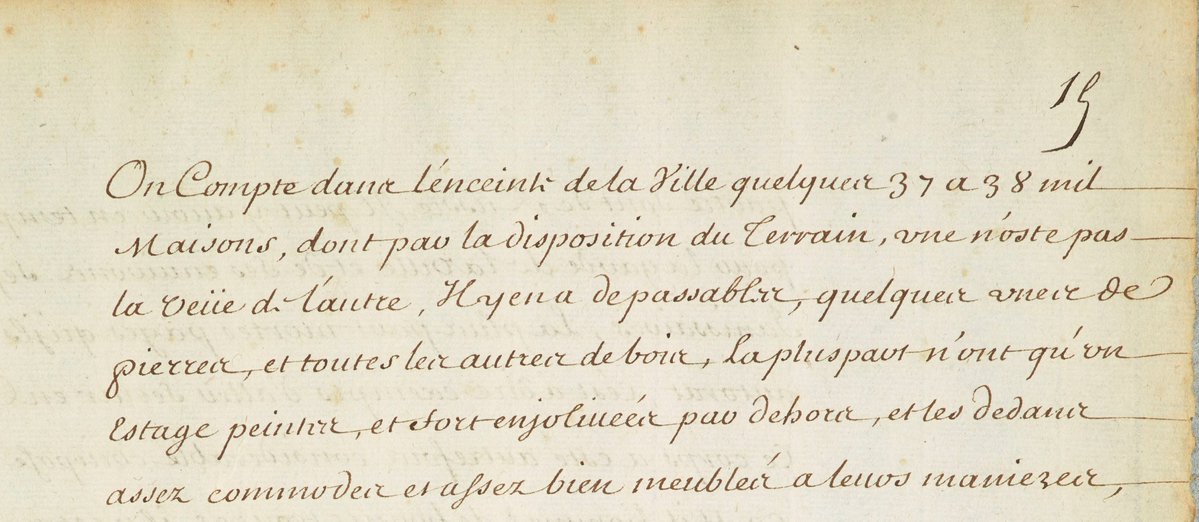 15
On Compte dans l'énceinte de la Ville quelques 37 a 38 mil
Maisons, dont par la disposition du Terrain, vne n'oste pas
la veüe de l'autre, Il y en a de passables, quelques vnes de
pierres, et toutes les autres de bois, La pluspart n'ont qu'vn
Estage peintes, et fort enjoliuées par dehors, et les dedans
assez commodes et assez bien meublés a leurs manieres,